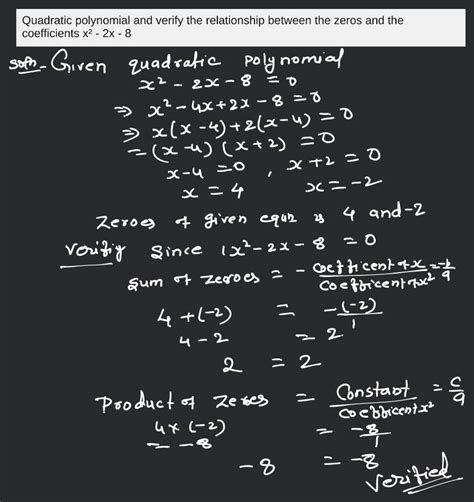 Quadratic polynomial and verify the relationship between the zeros and the
coefficients x² - 2x - 8
Soln - Given quadratic polynomial
x² - 2x - 8 = 0
⇒ x² - 4x + 2x - 8 = 0
⇒ x(x - 4) + 2(x - 4) = 0
= (x - 4) (x + 2) = 0
x - 4 = 0 , x + 2 = 0
x = 4 x = -2
Zeroes of given equn is 4 and -2
Verifiy Since 1x² - 2x - 8 = 0
Sum of zeroes = - coefficent of x / coefficent of x² = -b/a
4 + (-2) = -(-2)/1
4 - 2 = 2
2 = 2
Product of zeroes = Constant / coefficent x² = c/a
4 x (-2) = -8/1
= -8
-8 = -8
Verified